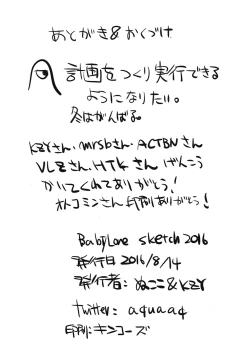 あとがき&おくづけ
計画をつくり実行できる
ようになりたい。
冬はがんばる。
KZYさん、mrsbさん、ACTBNさん
VLZさん、HTKさん げんこう
かいてくれてありがとう!
オトコミンさん 印刷ありがとう!
BabyLone sketch 2016
発行日 2016/8/14
発行者: ぬここ&KZY
twitter: aquaa4
印刷:キンコーズ